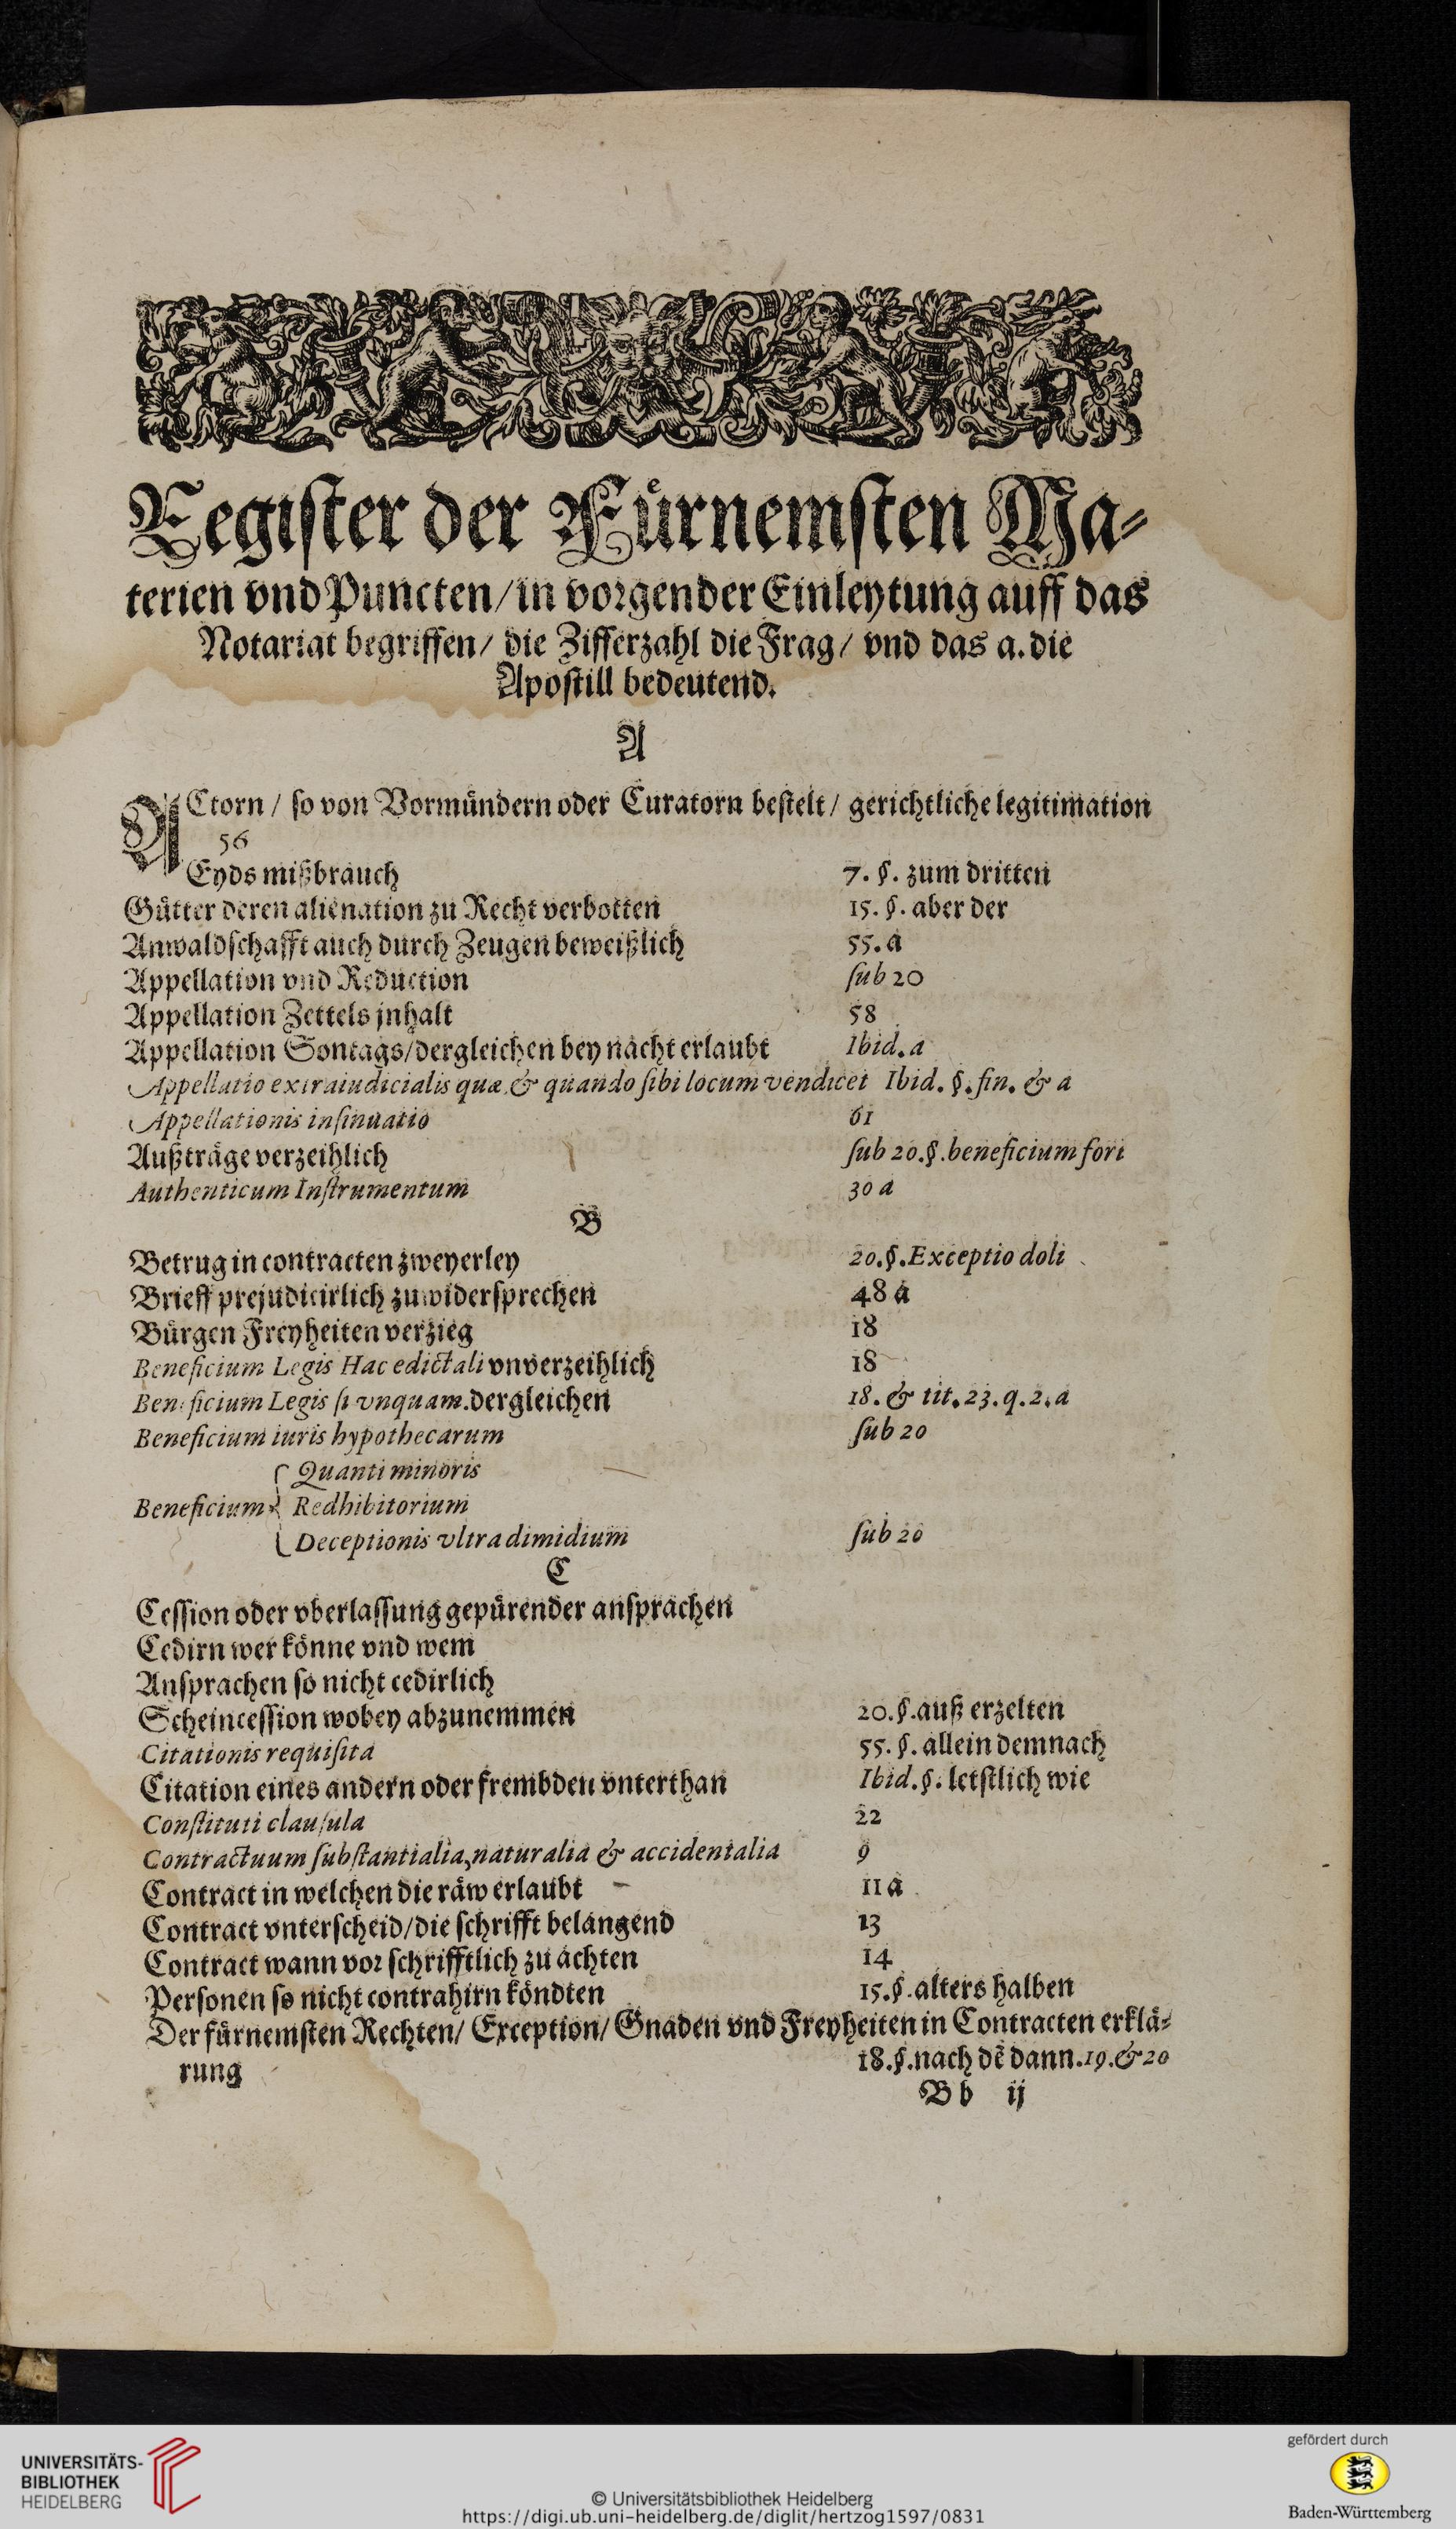 Register der Fürnemsten Ma⸗
terien vnd Puncten/in vorgender Einleytung auff das
Notariat begriffen/ die Zifferzahl die Frag/ vnd das a. die
Apostill bedeutend.
A
ACtorn / so von Vormündern oder Curatorn bestelt / gerichtliche legitimation
56
Eyds mißbrauch 7. §. zum dritten
Gütter deren alienation zu Recht verbotten 15. §. aber der
Anwaldschafft auch durch Zeugen beweißlich 55. a
Appellation vnd Reduction sub 20
Appellation Zettels jnhalt 58
Appellation Sontags/dergleichen bey nacht erlaubt Ibid. a
Appellatio extraiudicialis quæ & quando sibi locum vendicet Ibid. §. fin. & a
Appellationis insinuatio 61
Außträge verzeihlich sub 20.§.beneficium fori
Authenticum Instrumentum 30 a
B
Betrug in contracten zweyerley 20.§.Exceptio doli
Brieff prejudicirlich zuwidersprechen 48 a
Bürgen Freyheiten verzieg 18
Beneficium Legis Hac edictali vnverzeihlich 18
Beneficium Legis si vnquam.dergleichen 18. & tit. 23. q. 2. a
Beneficium iuris hypothecarum sub 20
Quanti minoris
Beneficium { Redhibitorium
Deceptionis vltra dimidium sub 20
C
Cession oder vberlassung gepürender ansprachen
Cedirn wer könne vnd wem
Ansprachen so nicht cedirlich
Scheincession wobey abzunemmen 20.§.auß erzelten
Citationis requisita 55. §. allein demnach
Citation eines andern oder frembden vnterthan Ibid.§. letstlich wie
Constituti clausula 22
Contractuum substantialia,naturalia & accidentalia 9
Contract in welchen die räw erlaubt 11 a
Contract vnterscheid/die schrifft belangend 13
Contract wann vor schrifftlich zu achten 14
Personen so nicht contrahirn köndten 15.§.alters halben
Der fürnemsten Rechten/ Exception/ Gnaden vnd Freyheiten in Contracten erklä⸗
rung 18.§.nach dẽ dann.19.& 20
B b ij
UNIVERSITÄTS-
BIBLIOTHEK
HEIDELBERG
© Universitätsbibliothek Heidelberg
https://digi.ub.uni-heidelberg.de/diglit/hertzog1597/0831
gefördert durch
Baden-Württemberg